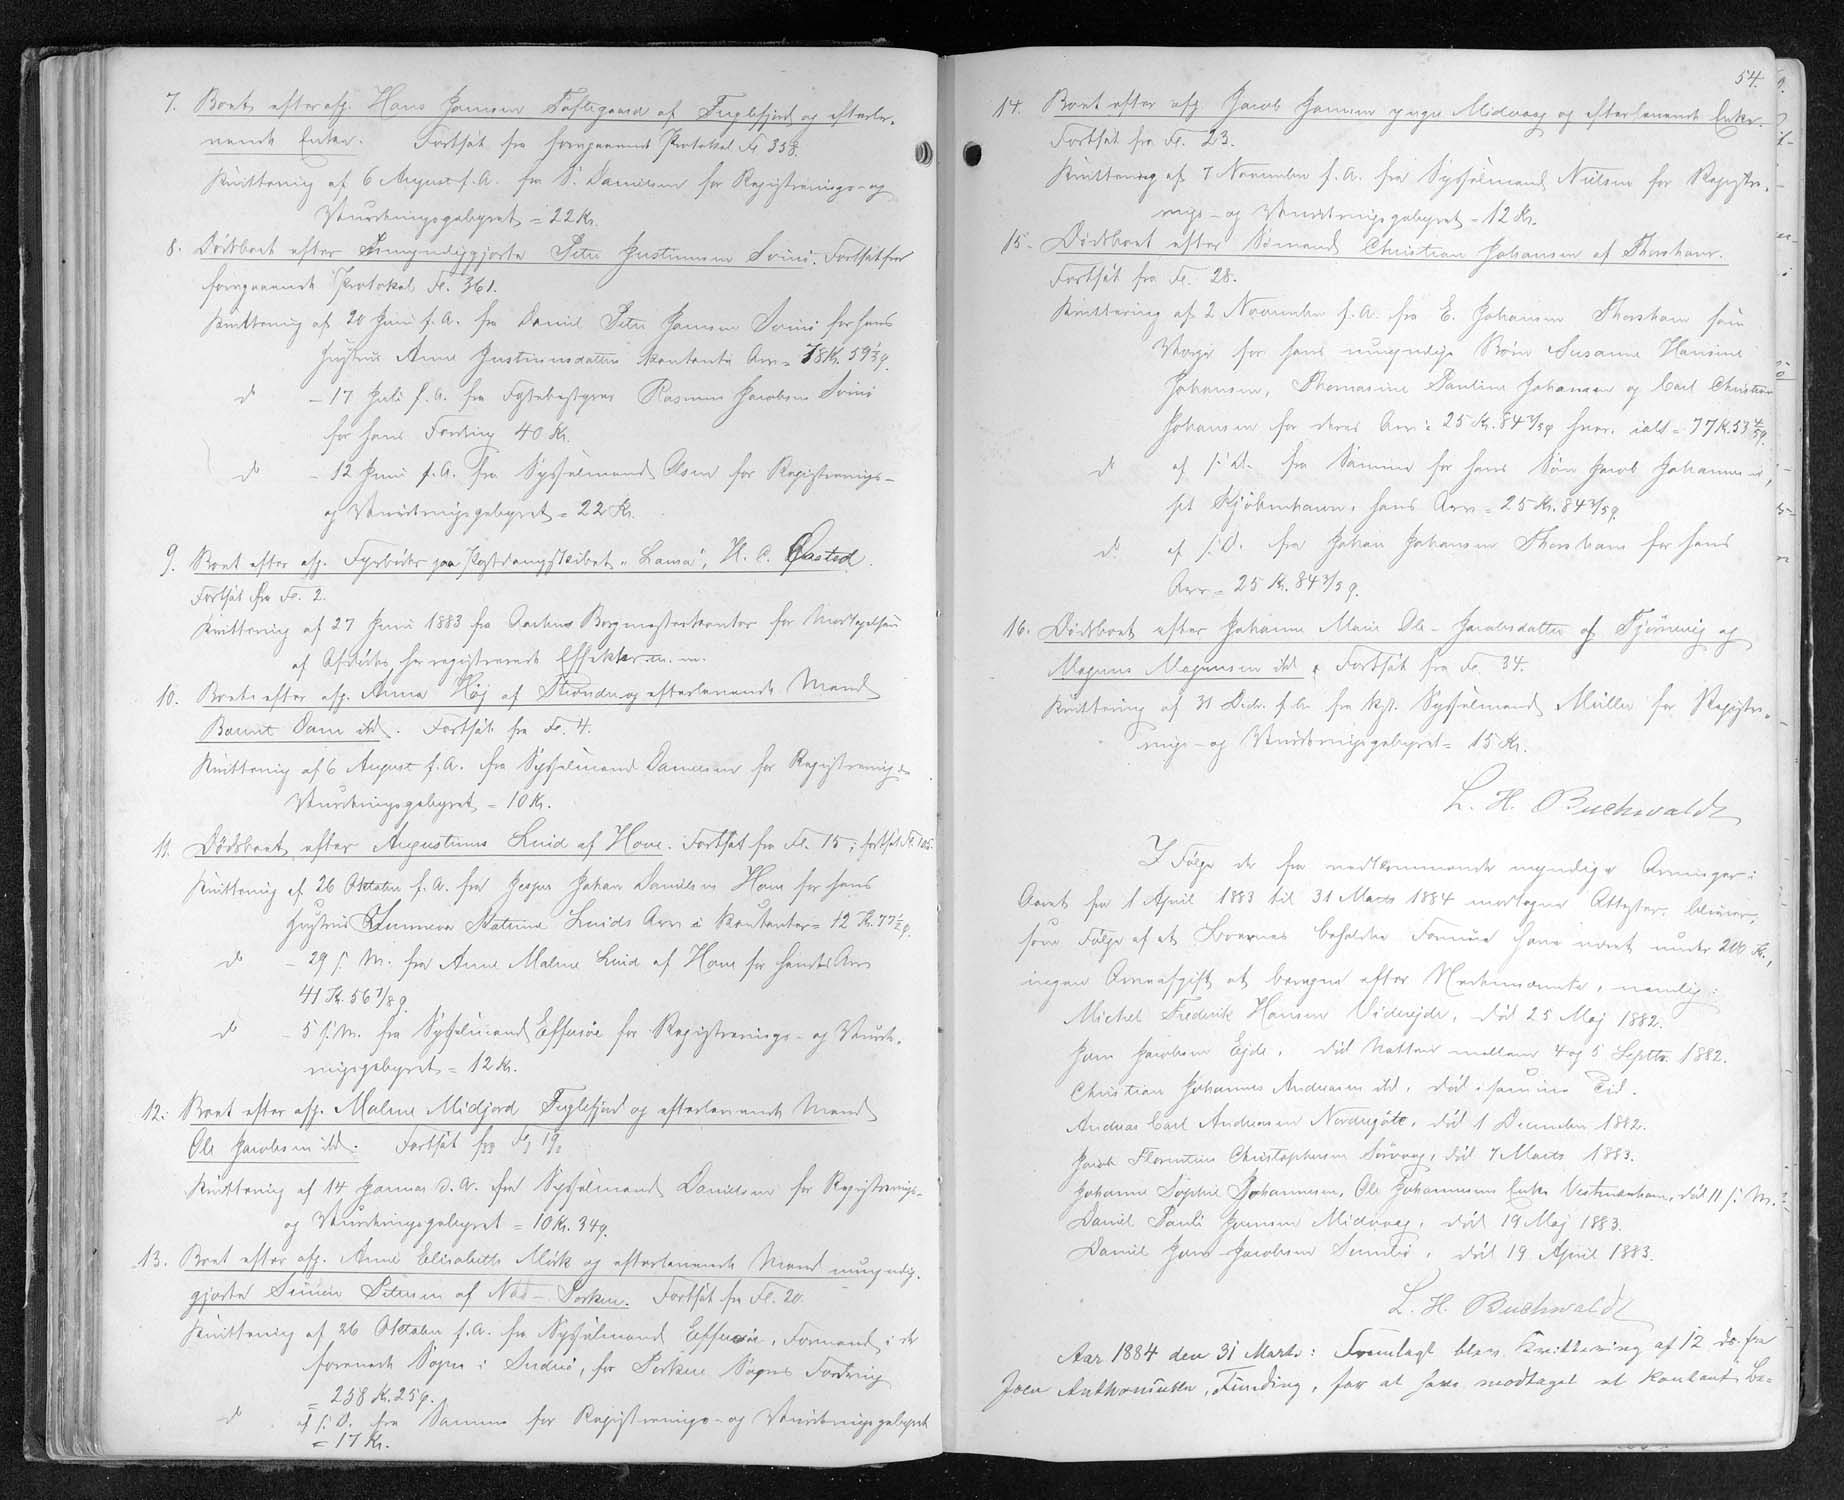 7. Boet efter afg. Hans Jensen Toftegaard af Fuglefjord og efterle-
vende Enke. Fortsat fra foregaaende Protokol Fl 358.
Kvittering af 6 August f. A. fra S. Danielsen for Registrerings- og
Vurderingsgebyret = 22 Kr.
8. Dødsboet efter Umyndiggjorte Peter Justinussen Svinø. Fortsat fra
foregaaende Protokol Fl. 361.
Kvittering af 20 Juni f. A. fra Daniel Peter Hansen Svinø for hans
Hustrus Anne Justinusdatters kontante Arv = 78 Kr. 59⅓ ø.
do - 17 Juli f. A. fra Fattebestyrer Rasmus Jacobsen Svinø
for hans Fordring 40 Kr.
do - 12 Juni f. A. fra Sysselmand Olsen for Registrerings-
og Vurderingsgebyret = 22 Kr.
9. Boet efter afg. Fyrbøder paa Postdampskibet "Laura", H. C. Qvisted.
Fortsat fra Fl. 2.
Kvittering af 27 Juni 1883 fra Aarhus Borgmesterkontor for Modtagelsen
af Afdødes her registrerede Effekter m. m.
10. Boet efter afg. Anna Høj af Strender og efterlevende Mand
Dam ibd. Fortsat fra Fl. 4.
Kvittering af 6 August f. A. fra Sysselmand Danielsen for Registrerings
Vurderingsgebyret = 10 Kr.
11. Dødsboet efter Augustinus Luid af Hove. Fortsat fra Fl. 15; fortsat Fl. 125.
Kvittering af 26 Oktober f. A. fra Jesper Johan Danielsen Hove for hans
Hustrus Sunneva Katrine Luids Arv i Kontanter = 12 Kr. 77½ ø.
do - 29 s. M. fra Anne Malene Luid af Hove for hendes Arv
41 Kr. 56 7/8 ø
do - 5 s. M. fra Sysselmand Effersøe for Registrerings- og Vurde-
ringsgebyret = 12 Kr.
12. Boet efter afg. Malene Midjord Fuglefjord og efterlevende Mand
Ole Jacobsen ibd. Fortsat fra Fl. 19.
Kvittering af 14 Januar d. A. fra Sysselmand Danielsen for Registrerings-
og Vurderingsgebyret = 10 Kr. 34 ø.
13. Boet efter afg. Anne Elisabeth Mørk og efterlevende Mand umyndig-
gjorte Simon Petersen af Porkere. Fortsat fra Fl. 20.
Kvittering af 26 Oktober f. A. fra Sysselmand Effersøe, Formand i de
forenede Sogne i Suderø, for Porkere Sogns Fordring
= 258 Kr. 25 ø.
do af s. D. fra Samme for Registrerings- og Vurderingsgebyret
= 17 Kr.
54.
14. Boet efter afg. Jacob Hansen yngre Midvaag og efterlevende Enke.
Fortsat fra Fl. 23.
Kvittering af 7 November f. A. fra Sysselmand Nielsen for Registre-
rings- og Vurderingsgebyret = 12 Kr.
15. Dødsboet efter Sømand Christian Johansen af Thorshavn.
Fortsat fra Fl. 28.
Kvittering af 2 November f. A. fra E. Johansen Thorshavn som
Værge for hans umyndige Børn Susanne Hansine
Johansen, Thomasine Pauline Johansen og Carl Christian
Johansen for deres Arv à 25 Kr. 84 3/5 ø hver, ialt = 77 Kr. 53 4/5 ø.
do af s. D. fra Samme for hans Søn Jacob Johannes,
pt Kjøbenhavn, hans Arv = 25 Kr. 84 3/5 ø.
do af s. D. fra Johan Johansen Thorshavn for hans
Arv = 25 Kr. 84 3/5 ø.
16. Dødsboet efter Johanne Marie Ole-Jacobsdatter af Tjørnevig og
Magnus Magnussen ibd. Fortsat fra Fl. 34.
Kvittering af 31 Decbr. f. A. fra kst. Sysselmand Müller for Registre-
rings- og Vurderingsgebyret = 15 Kr.
L. H. Buchwaldt
I Følge de fra nedkommende myndige Arvinger i
Aaret fra 1 April 1883 til 31 Marts 1884 modtagne Attester, bliver,
som Følge af at Boernes beholdne Formue have været under 200 Kr.,
ingen Arveafgift at beregne efter Nedennævnte, nemlig:
Michel Frederik Hansen Viderejde, død 25 Maj 1882.
Jens Jacobsen Ejde, død Natten mellem 4 og 5 Septbr. 1882.
Christian Johannes Andreasen ibd., død i samme Tid.
Andreas Carl Andreasen Nordregøte, død 1 December 1882.
Jacob Florentin Christophersen Sørvaag, død 7 Marts 1883.
Johanne Sophie Johannesen, Ole Johannesens Enke Vestmanhavn, død 11 s. M.
Daniel Pauli Hansen Midvaag, død 19 Maj 1883.
Daniel Jens Jacobsen Sumbø, død 19 April 1883.
L. H. Buchwaldt
Aar 1884 den 31 Marts: Fremlagt blev Kvittering af 12 ds. fra
Joen Anthoniussen, Funding, for at have modtaget et kontant Be-